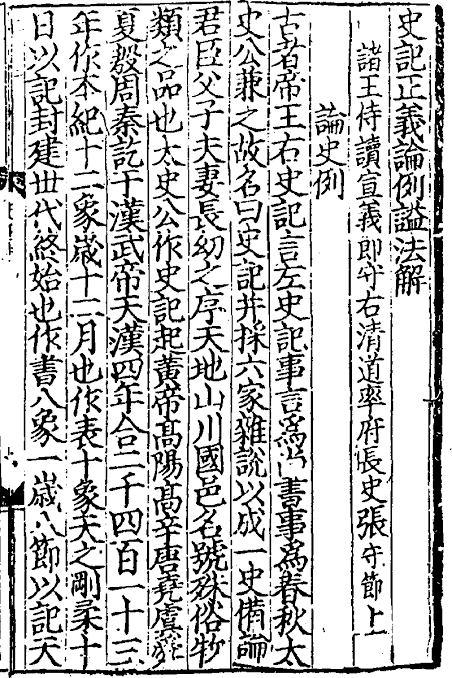 史記正義論例謚法解
諸王侍讀宣義郎守右清道率府長史張守節上
論史例
古者帝王右史記言左史記事言爲尚書事爲春秋太
史公兼之故名曰史記并採六家雜說以成一史備論
君臣父子夫妻長幼之序天地山川國邑名號殊俗物
類之品也太史公作史記起黃帝高陽高辛唐堯虞舜
夏殷周秦訖于漢武帝天漢四年合二千四百一十三
年作本紀十二象歲十二月也作表十象天之剛柔十
日以記封建世代終始也作書八象一歲八節以記天